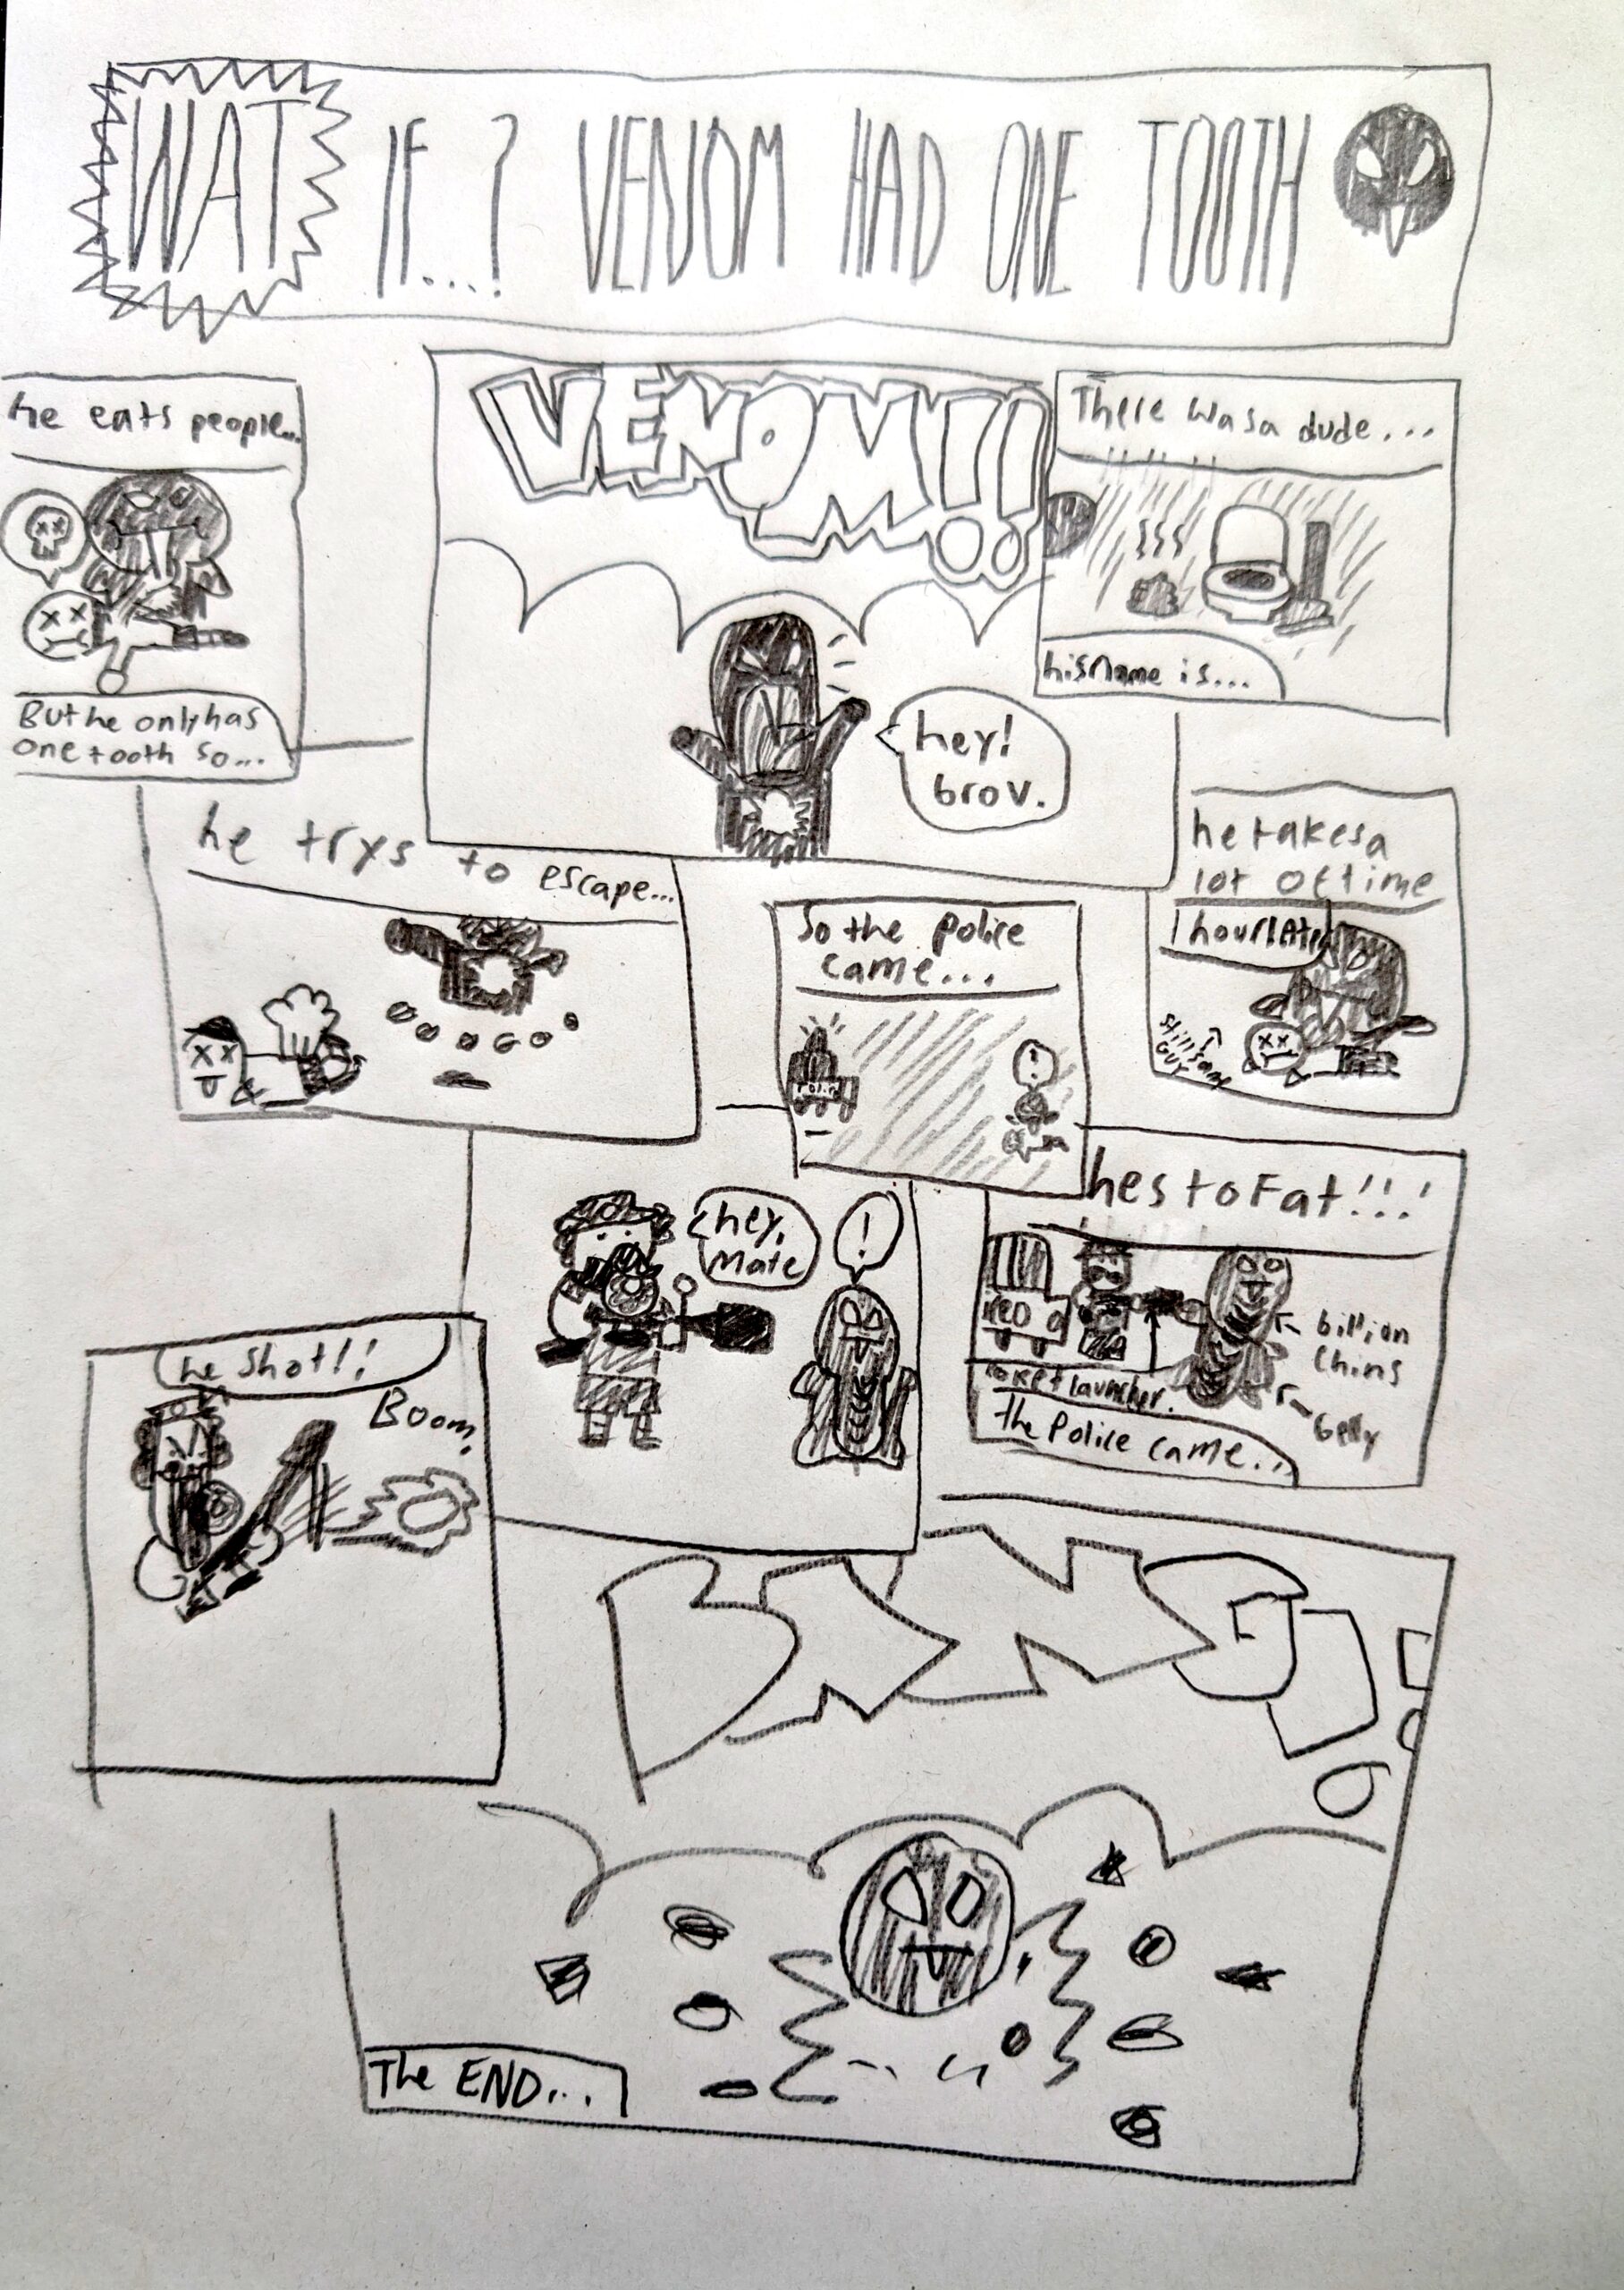 WAT IF...? VENOM HAD ONE TOOTH
There was a dude...
his name is...
VENOM!!
hey!
brov.
he eats people...
But he only has
one tooth so...
he takes a
lot of time
1 hour later
still same
guy
So the police
came...
!
he trys to escape...
hes to Fat!!!
billion
chins
belly
roket launcher.
the police came...
hey,
mate
!
he shot!!
Boom,
The END...